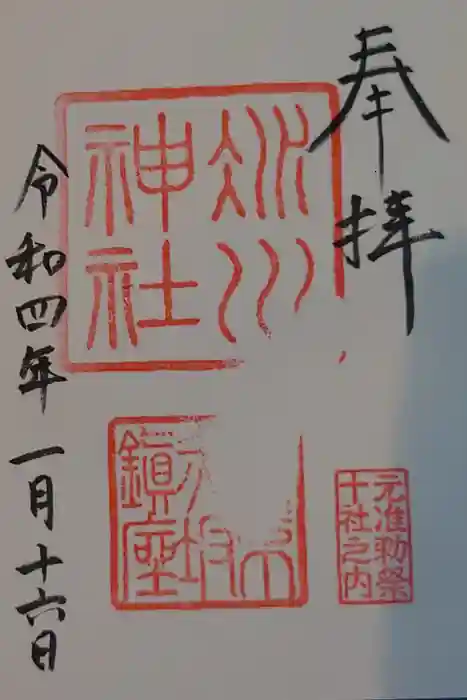 奉拝
冰川
神社
坂
鎮座
元准勅祭
十社之内
令和四年一月十六日